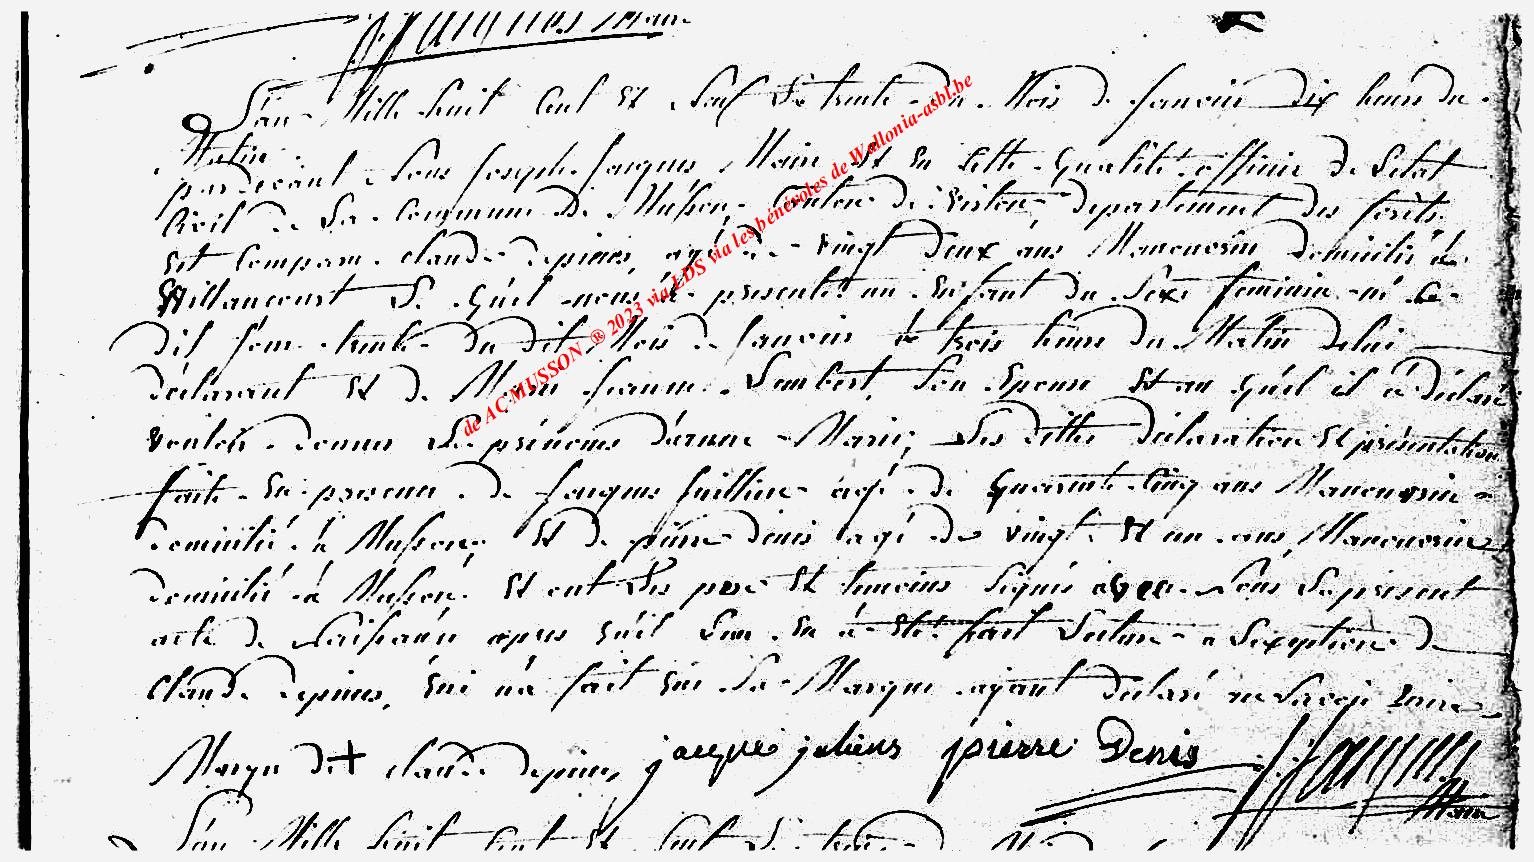 Maire
L'an Mille huit Cent Et Neuf Le trente du Mois de janvier dix heures du
Matin
pardevant Nous joseph jacques Maire Et En Cette qualité officier de L'etat
Civil de La Commune de Musson, Canton de virton, departement des forêts
Est Comparu claude depiens, agé de vingt deux ans Manoeuvrin domicilié à
Willancourt Le quel nous à presenté un Enfant du Sexe feminin né le
dit jour trente du dit Mois de janvier à trois heures du Matin de lui
déclarant Et de Marie jeanne Lambert, Son Epouse Et au quel il à déclaré
vouloir donner Les prénoms d'anne Marie, Les dittes déclaration Et présentation
faite En presence de jacques juillien agé de quarante Cinq ans Manoeuvrin
domicilié à Musson Et de pierre denis agé de vingt Et un ans, Manoeuvrin
domicilié à Musson Et ont Les pere Et temoins signés avec Nous Le present
acte de Naissance apres qu'il Leur En à Eté fait Lecture a L'exception de
claude depiens, qui n'a fait que Sa Marque ayant declaré ne Savoir Ecrire
Marque de + claude depiens, jacque juliens pierre Denis JJacques
Maire
L'an Mille huit Cent Et Neuf Le
de AC MUSSON ® 2023 via LDS via les bénévoles de Wallonia-asbl.be